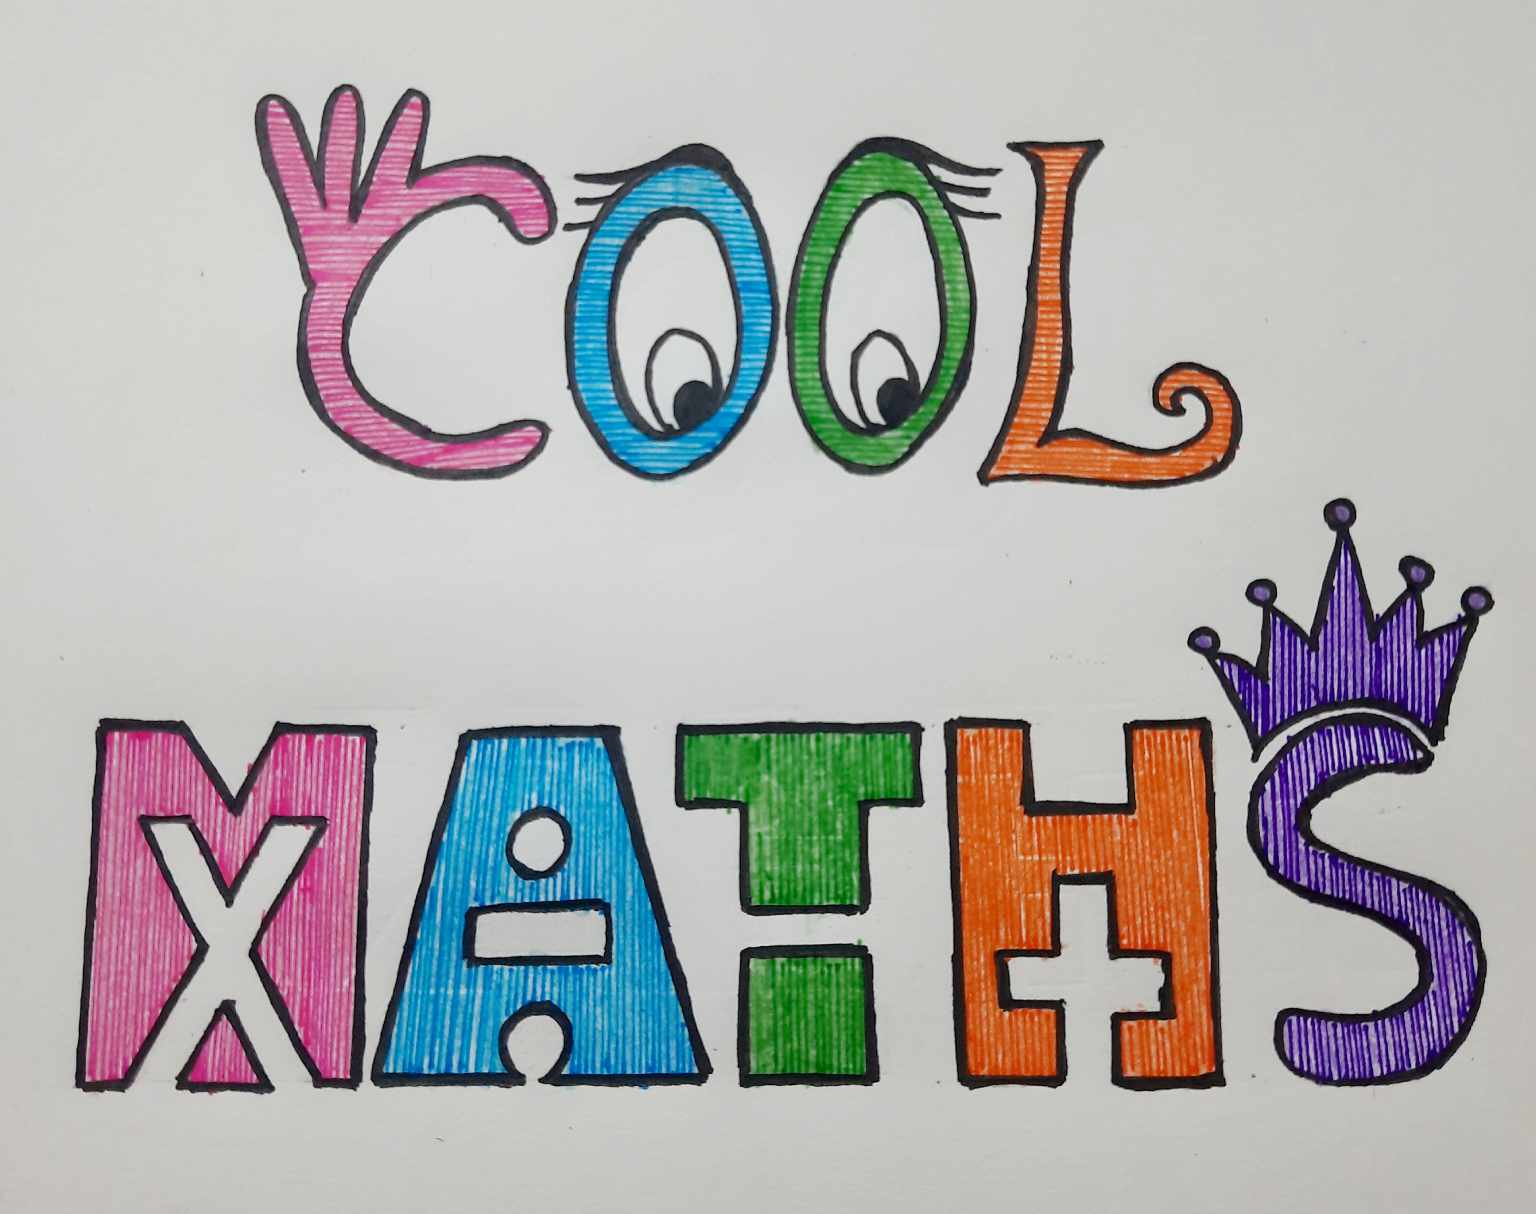 COOL
MATHS